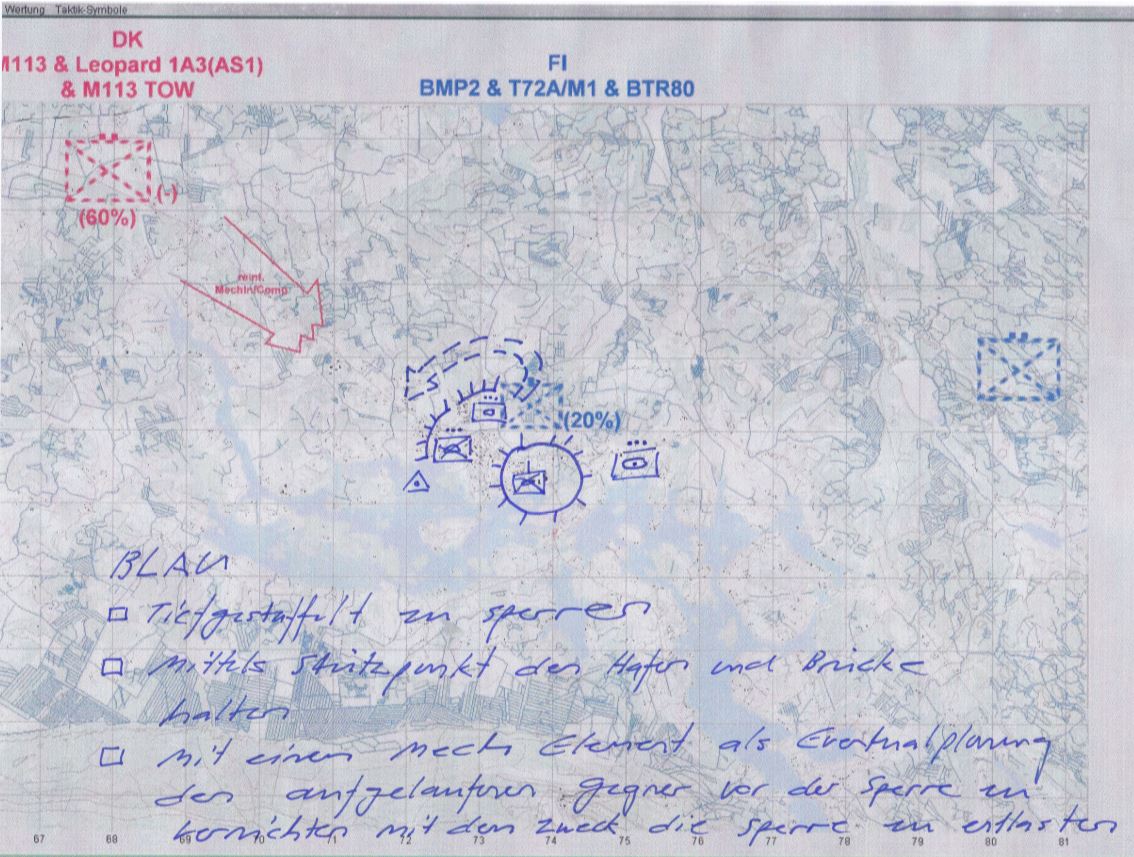 Wertung Taktik-Symbole
DK
M113 & Leopard 1A3(AS1)
& M113 TOW
FI
BMP2 & T72A/M1 & BTR80
(-)
(60%)
reinf.
MechInfComp
S
(20%)
BLAU
□ Tiefgestaffelt zu sperren
□ Mittels Stützpunkt den Hafen und Brücke
halten
□ Mit einem Mech Element als Eventualplanung
den aufgelaufenen Gegner vor der Sperre zu
vernichten mit dem Zweck die Sperre zu entlasten
67 68 69 70 71 72 73 74 75 76 77 78 79 80 81